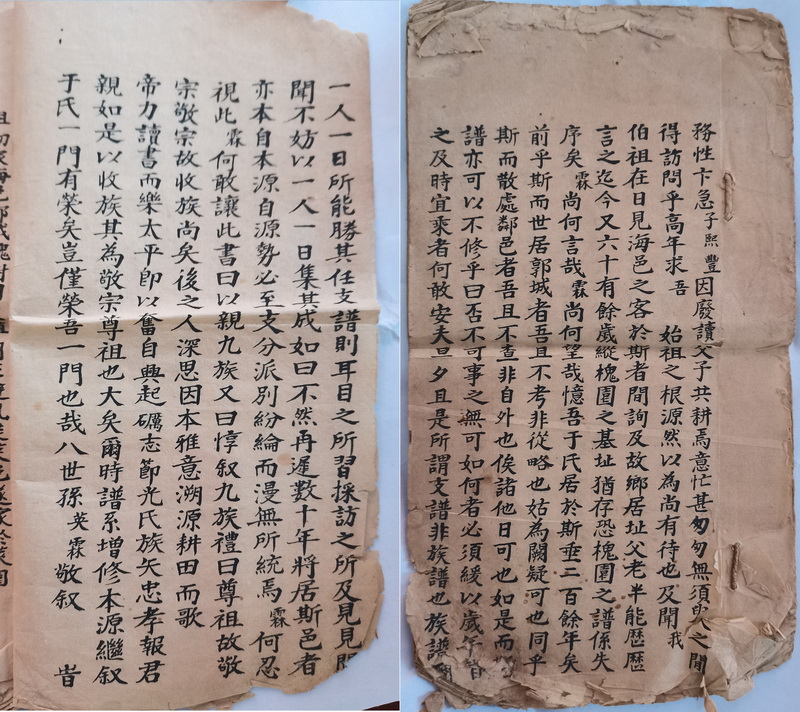 務性卞急子熙豐因廢讀父子共耕焉意忙甚匆匆無須臾之閒
得訪問乎高年求吾 始祖之根源然以為尚有待也及聞我
伯祖在日見海邑之客於斯者間詢及故鄉居址父老半能歷歷
言之迄今又六十有餘歲縱槐園之基址猶存恐槐園之譜係失
序矣霖尚何言哉霖尚何望哉憶吾于氏居於斯垂二百餘年矣
前乎斯而世居郭城者吾且不考非從略也姑為闕疑可也同乎
斯而散處鄰邑者吾且不查非自外也俟諸他日可也如是而
譜亦可以不修乎曰否不可事之無可如何者必須緩以歲年
之及時宜乘者何敢安夫旦夕且是所謂支譜非族譜也族譜
一人一日所能勝其任支譜則耳目之所習採訪之所及見見聞
聞不妨以一人一日集其成如曰不然再遲數十年將居斯邑者
亦本自本源自源勢必至支分派別紛綸而漫無所統焉霖何忍
視此霖何敢讓此書曰以親九族又曰惇叙九族禮曰尊祖故敬
宗敬宗故收族尚矣後之人深思因本雅意溯源耕田而歌
帝力讀書而樂太平即以奮自興起礪志節光氏族矢忠孝報君
親如是以收族其為敬宗尊祖也大矣爾時譜系增修本源繼叙
于氏一門有榮矣豈僅榮吾一門也哉八世孫英霖敬叙 旹